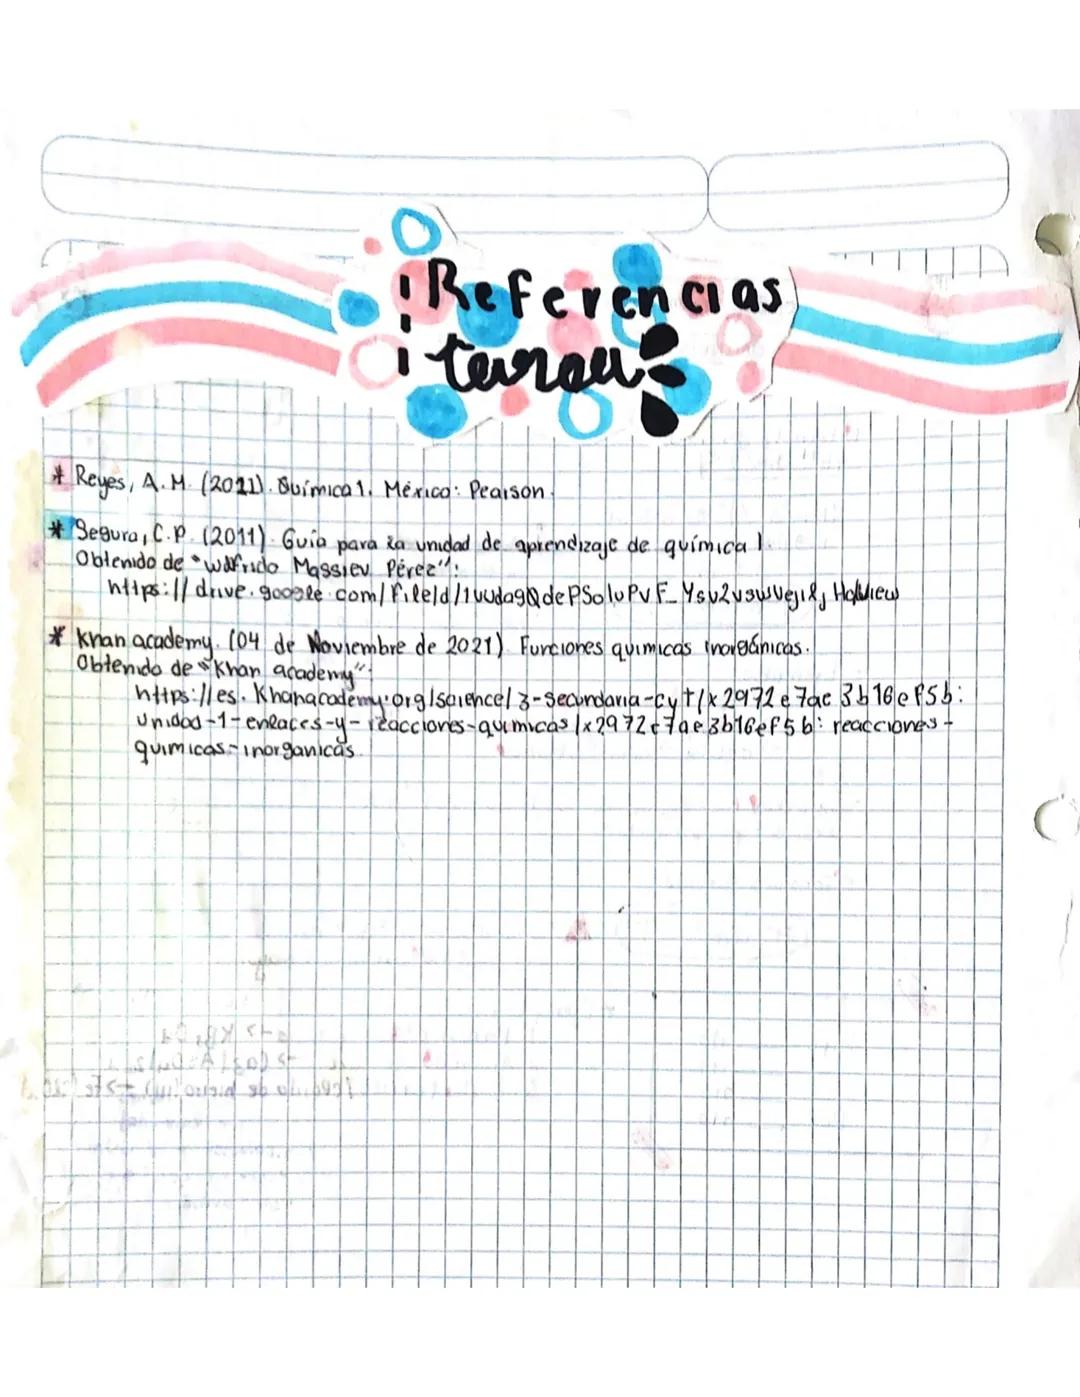 Referencias
tarea
* Reyes, A.M. (2011). Química 1. México: Pearson.
* Segura, C.P. (2011). Guía para la unidad de aprendizaje de química 1.
Obtenido de "Wilfrido Massieu Pérez":
https://drive.google.com/file/d/
* Khan academy. (04 de Noviembre de 2021). Funciones químicas inorgánicas.
Obtenido de "Khan academy":
https://es.Khanacademy.org/science/3-secundaria-cyt/x2972e7ae3b16ef5b:
unidad-1-enlaces-y-reacciones-quimicas/x2972e7ae3b16ef5b:reacciones-
quimicas-inorganicas.